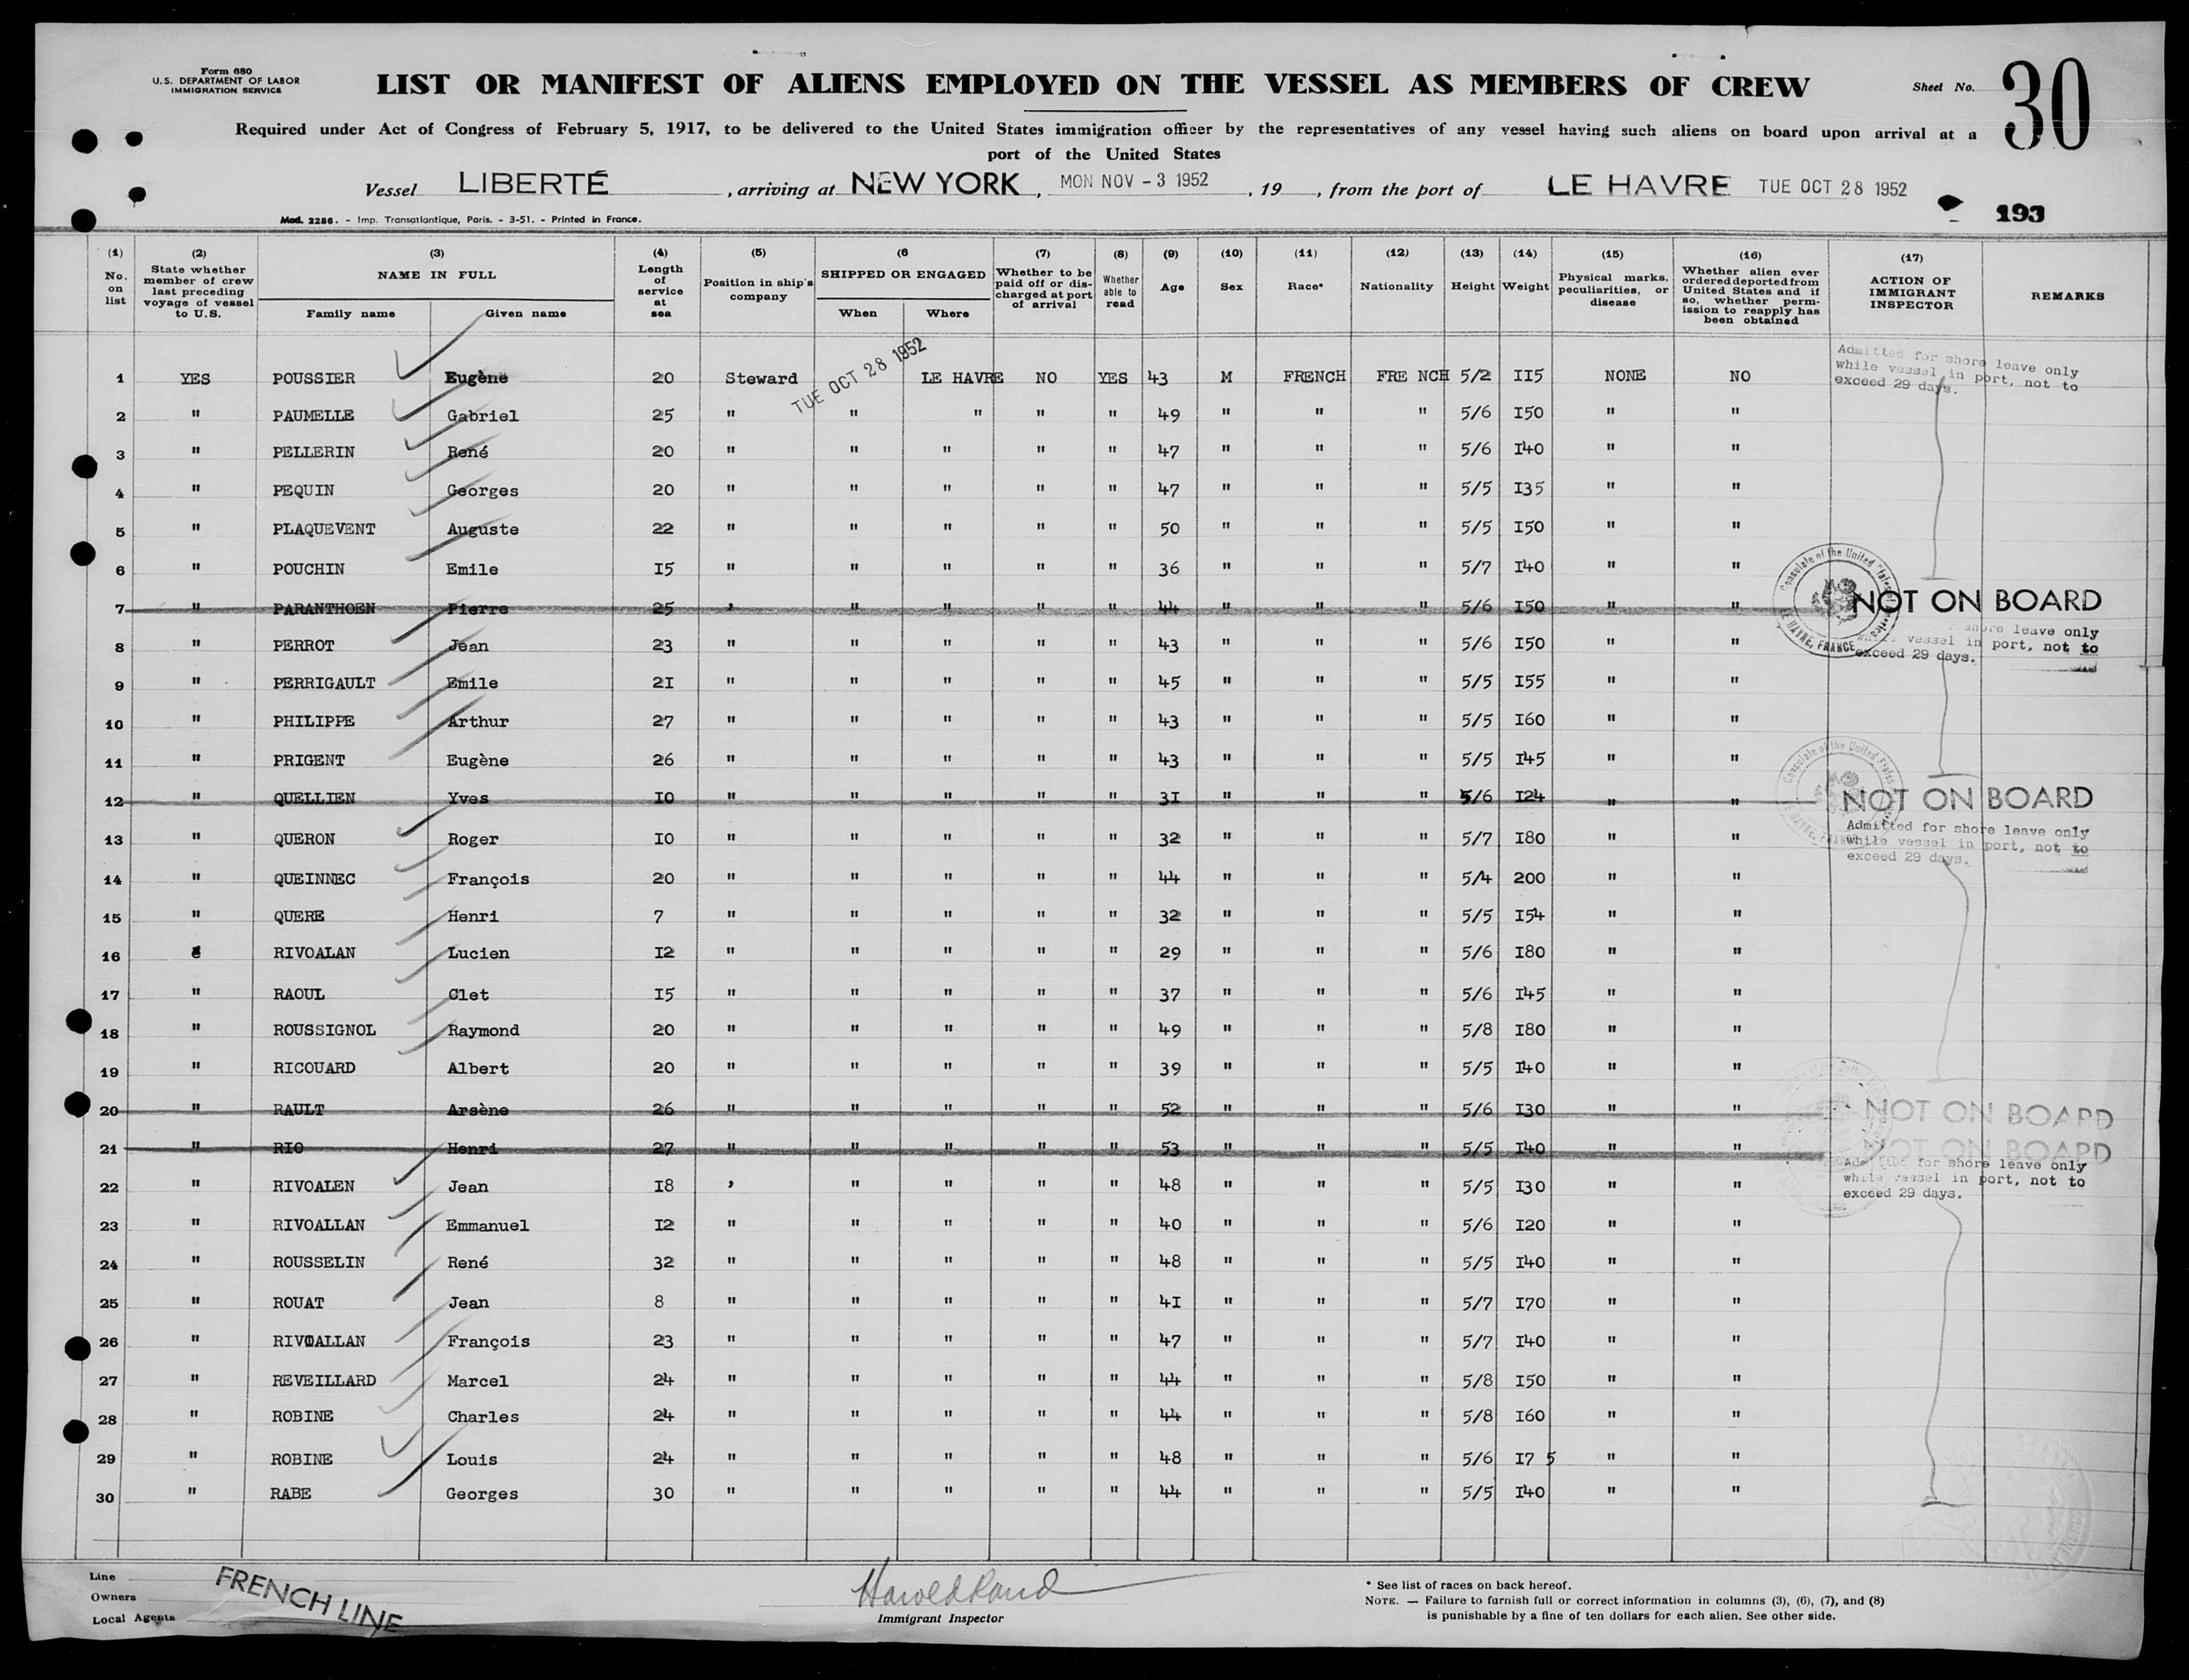 Form 680
U.S. DEPARTMENT OF LABOR
IMMIGRATION SERVICE
LIST OR MANIFEST OF ALIENS EMPLOYED ON THE VESSEL AS MEMBERS OF CREW
Sheet No. 30
Required under Act of Congress of February 5, 1917, to be delivered to the United States immigration officer by the representatives of any vessel having such aliens on board upon arrival at a
port of the United States
Vessel LIBERTÉ, arriving at NEW YORK, MON NOV - 3 1952, 19 , from the port of LE HAVRE TUE OCT 28 1952
Mod. 2286. - Imp. Transatlantique, Paris. - 3-51. - Printed in France.
193
(1) No. on list (2) State whether member of crew last preceding voyage of vessel to U.S. (3) NAME IN FULL Family name Given name (4) Length of service at sea (5) Position in ship's company (6 SHIPPED OR ENGAGED When Where (7) Whether to be paid off or discharged at port of arrival (8) Whether able to read (9) Age (10) Sex (11) Race* (12) Nationality (13) Height (14) Weight (15) Physical marks, peculiarities, or disease (16) Whether alien ever ordered deported from United States and if so, whether permission to reapply has been obtained (17) ACTION OF IMMIGRANT INSPECTOR REMARKS
1 YES POUSSIER Eugène 20 Steward TUE OCT 28 1952 LE HAVRE NO YES 43 M FRENCH FRE NCH 5/2 II5 NONE NO
Admitted for shore leave only
while vessel in port, not to
exceed 29 days.
2 " PAUMELLE Gabriel 25 " " " " " 49 " " " 5/6 I50 " "
3 " PELLERIN René 20 " " " " " 47 " " " 5/6 I40 " "
4 " PEQUIN Georges 20 " " " " " 47 " " " 5/5 I35 " "
5 " PLAQUEVENT Auguste 22 " " " " " 50 " " " 5/5 I50 " "
6 " POUCHIN Emile I5 " " " " " 36 " " " 5/7 I40 " "
7 " PARANTHOEN Pierre 25 ' " " " " 44 " " " 5/6 I50 " " NOT ON BOARD
Consulate of the United States
LE HAVRE, FRANCE
shore leave only
vessel in port, not to
exceed 29 days.
8 " PERROT Jean 23 " " " " " 43 " " " 5/6 I50 " "
9 " PERRIGAULT Emile 2I " " " " " 45 " " " 5/5 I55 " "
10 " PHILIPPE Arthur 27 " " " " " 43 " " " 5/5 I60 " "
11 " PRIGENT Eugène 26 " " " " " 43 " " " 5/5 I45 " "
12 " QUELLIEN Yves I0 " " " " " 3I " " " 5/6 I24 " " NOT ON BOARD
Consulate of the United States
Admitted for shore leave only
while vessel in port, not to
exceed 29 days.
13 " QUERON Roger I0 " " " " " 32 " " " 5/7 I80 " "
14 " QUEINNEC François 20 " " " " " 44 " " " 5/4 200 " "
15 " QUERE Henri 7 " " " " " 32 " " " 5/5 I54 " "
16 RIVOALAN Lucien I2 " " " " " 29 " " " 5/6 I80 " "
17 " RAOUL Clet I5 " " " " " 37 " " " 5/6 I45 " "
18 " ROUSSIGNOL Raymond 20 " " " " " 49 " " " 5/8 I80 " "
19 " RICOUARD Albert 20 " " " " " 39 " " " 5/5 I40 " "
20 " RAULT Arsène 26 " " " " " 52 " " " 5/6 I30 " " NOT ON BOARD
21 " RIO Henri 27 " " " " " 53 " " " 5/5 I40 " " NOT ON BOARD
Admitted for shore leave only
while vessel in port, not to
exceed 29 days.
22 " RIVOALEN Jean I8 ' " " " " 48 " " " 5/5 I30 " "
23 " RIVOALLAN Emmanuel I2 " " " " " 40 " " " 5/6 I20 " "
24 " ROUSSELIN René 32 " " " " " 48 " " " 5/5 I40 " "
25 " ROUAT Jean 8 " " " " " 4I " " " 5/7 I70 " "
26 " RIVOALLAN François 23 " " " " " 47 " " " 5/7 I40 " "
27 " REVEILLARD Marcel 24 " " " " " 44 " " " 5/8 I50 " "
28 " ROBINE Charles 24 " " " " " 44 " " " 5/8 I60 " "
29 " ROBINE Louis 24 " " " " " 48 " " " 5/6 I7 5 " "
30 " RABE Georges 30 " " " " " 44 " " " 5/5 I40 " "
Line
Owners
Local Agents
FRENCH LINE
Harold Rand
Immigrant Inspector
* See list of races on back hereof.
NOTE. — Failure to furnish full or correct information in columns (3), (6), (7), and (8)
is punishable by a fine of ten dollars for each alien. See other side.